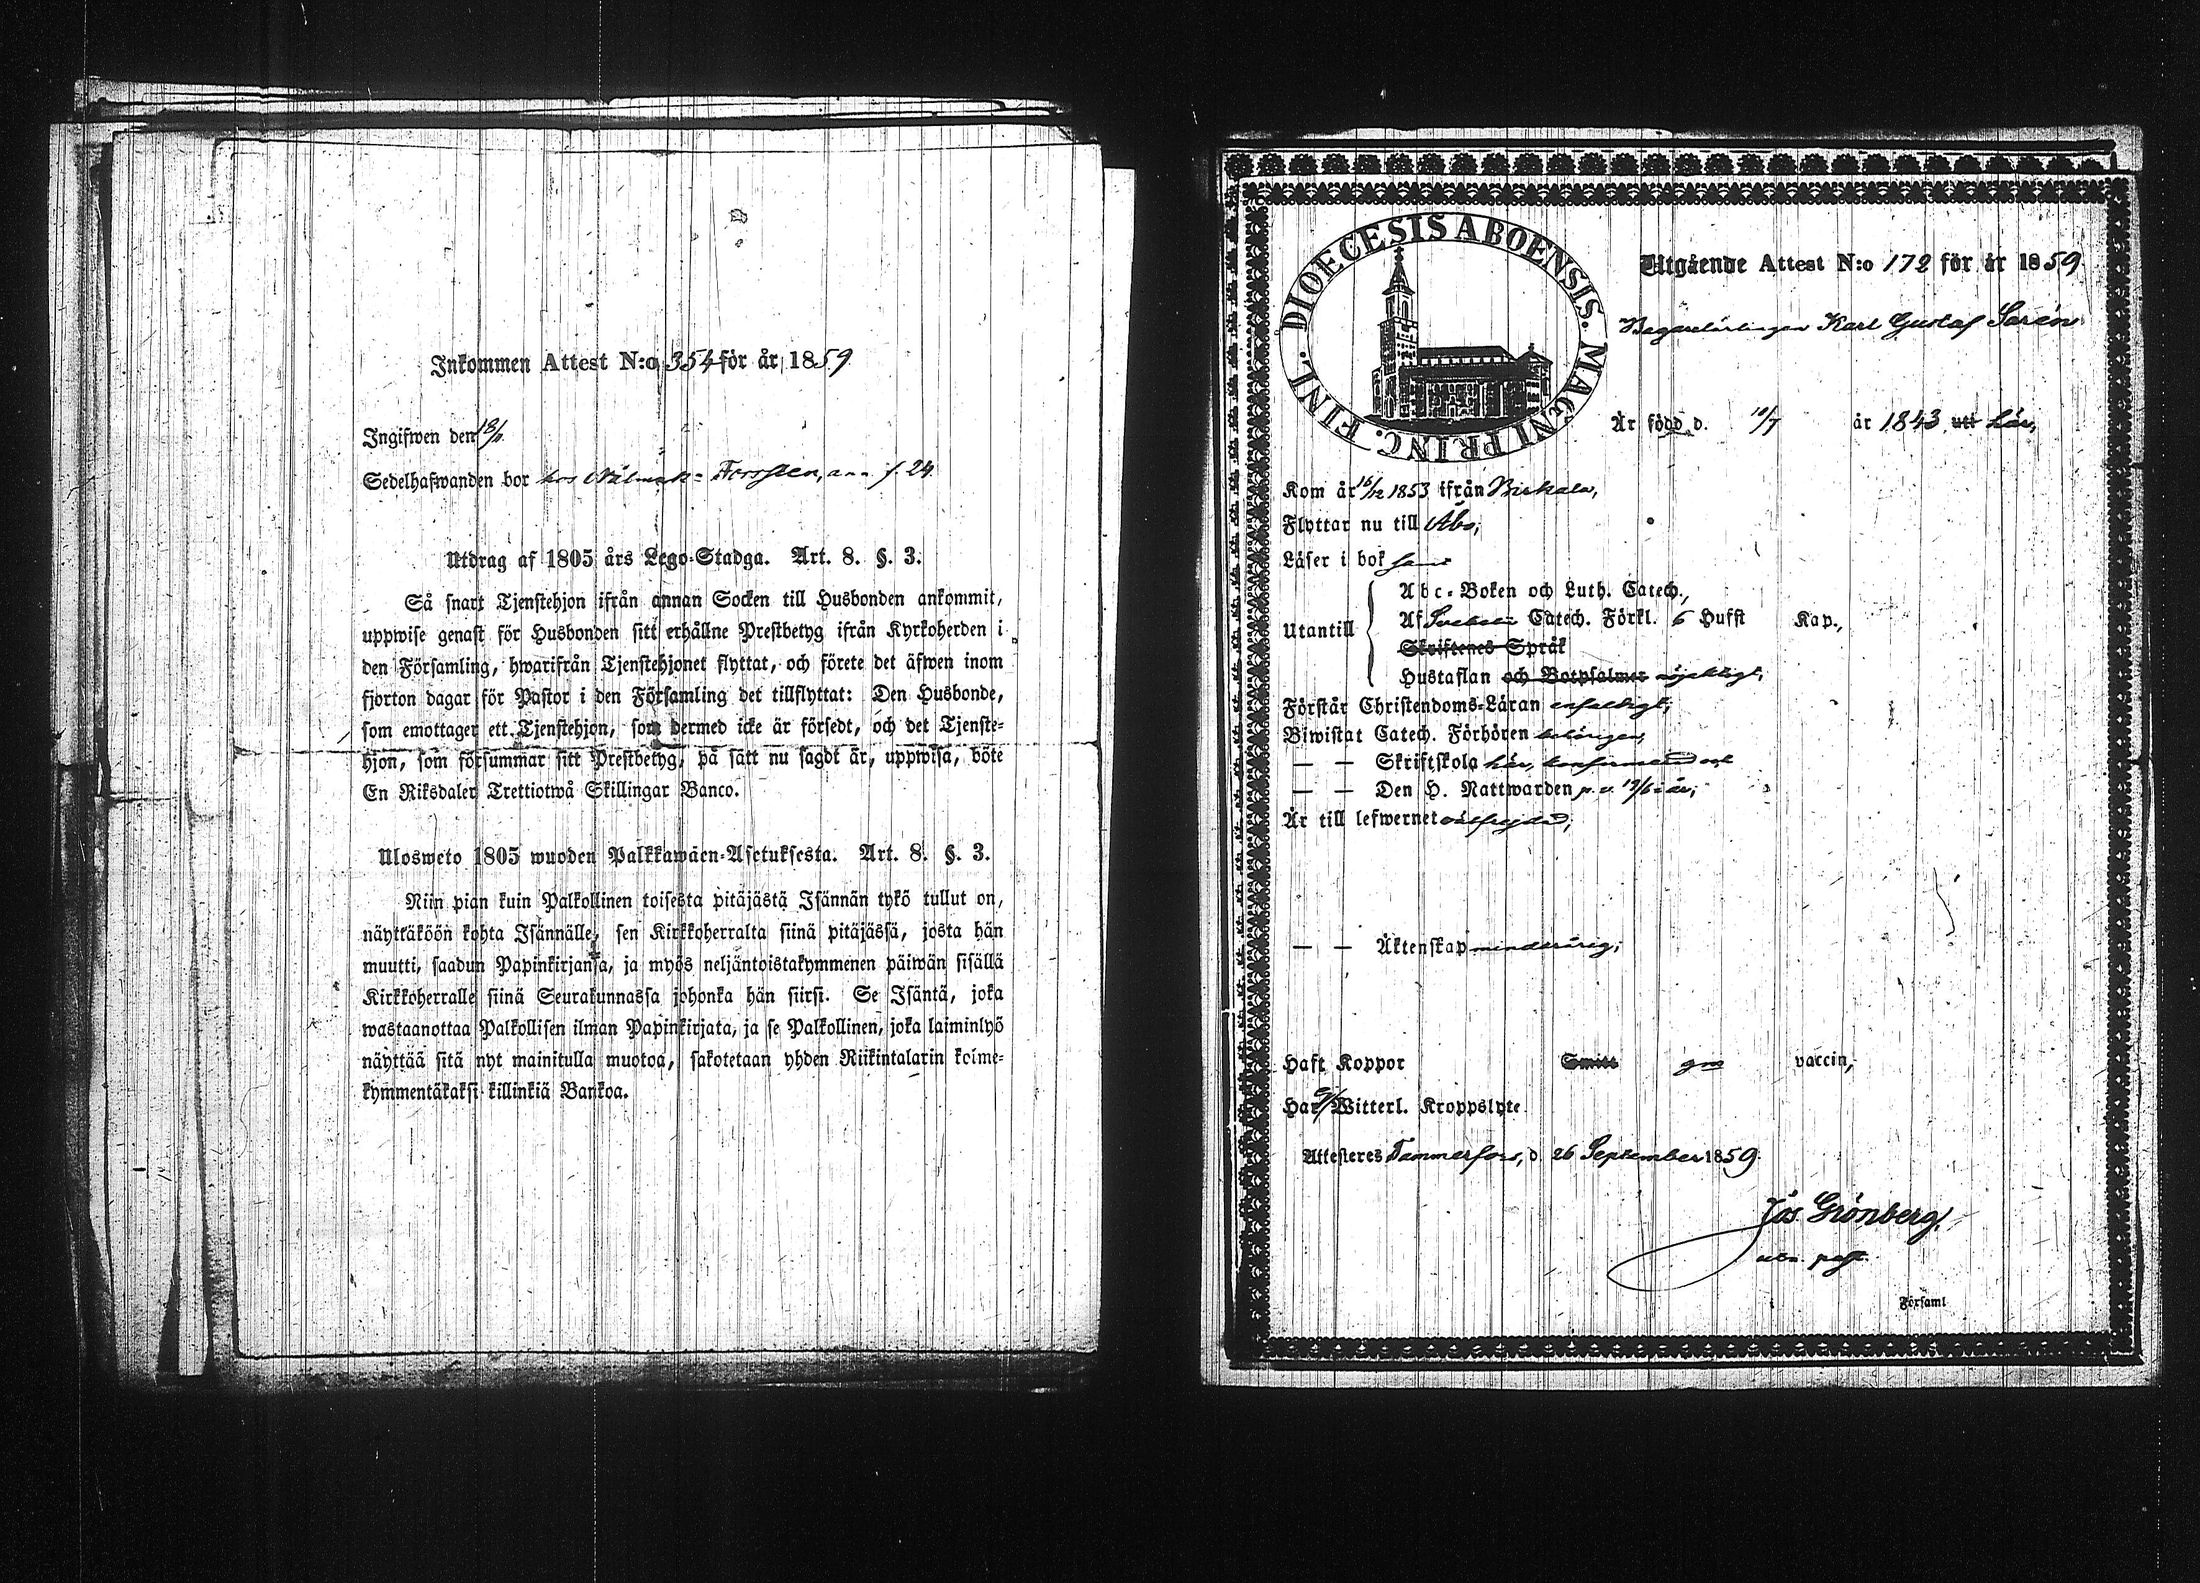 Inkommen Attest N:o 354 för år 1859
Ingifwen den 18/11
Sedelhafwanden bor hos Forssten, f. 24
Utdrag af 1805 års Lego-Stadga. Art. 8. §. 3.
Så snart Tjenstehjon ifrån annan Socken till Husbonden ankommit,
uppwise genast för Husbonden sitt erhållne Prestbetyg ifrån Kyrkoherden i
den Församling, hwarifrån Tjenstehjonet flyttat, och förete det äfwen inom
fjorton dagar för Pastor i den Församling det tillflyttat: Den Husbonde,
som emottager ett Tjenstehjon, som dermed icke är försedt, och det Tjenste-
hjon, som försummar sitt Prestbetyg, på sätt nu sagdt är, uppwisa, böte
En Riksdaler Trettiotwå Skillingar Banco.
Ulosweto 1805 wuoden Palkkawäen-Asetuksesta. Art. 8. §. 3.
Niin pian kuin Palkollinen toisesta pitäjästä Isännän tykö tullut on,
näyttäköön kohta Isännälle, sen Kirkkoherralta siinä pitäjässä, josta hän
muutti, saadun Papinkirjansa, ja myös neljäntoistakymmenen päiwän sisällä
Kirkkoherralle siinä Seurakunnassa johonka hän siirsi. Se Isäntä, joka
wastaanottaa Palkollisen ilman Papinkirjata, ja se Palkollinen, joka laiminlyö
näyttää sitä nyt mainitulla muotoa, sakotetaan yhden Riikintalarin kolme-
kymmentäkaksi killinkiä Bankoa.
DIOECESIS ABOENSIS. MAGNI PRINC. FINL.
Utgående Attest N:o 172 för år 1859
Bagarelärlingen Karl Gustaf Sarén
Är född d. 10/7 år 1843 utt här,
Kom år 16/12 1853 ifrån Birkala,
Flyttar nu till Åbo;
Läser i bok
Abc-Boken och Luth. Catech.,
Utantill
Af Svebelii Catech. Förkl. 6 Hufst Kap.,
Skriftenes Språk
Hustaflan och Botpsalmer nöjaktigt;
Förstår Christendoms-Läran enfaldigt;
Biwistat Catech. Förhören behörigen,
— — Skriftskola här, konfirmerad och
— — Den H. Nattwarden p. v. 19/6 i år;
Är till lefwernet välfrejdad;
— — Äktenskap minderårig;
Haft Koppor Smitt gm vaccin,
Har Witterl. Kroppslyte
Attesteres Tammerfors, d. 26 September 1859.
Jos. Grönberg,
past.
Församl